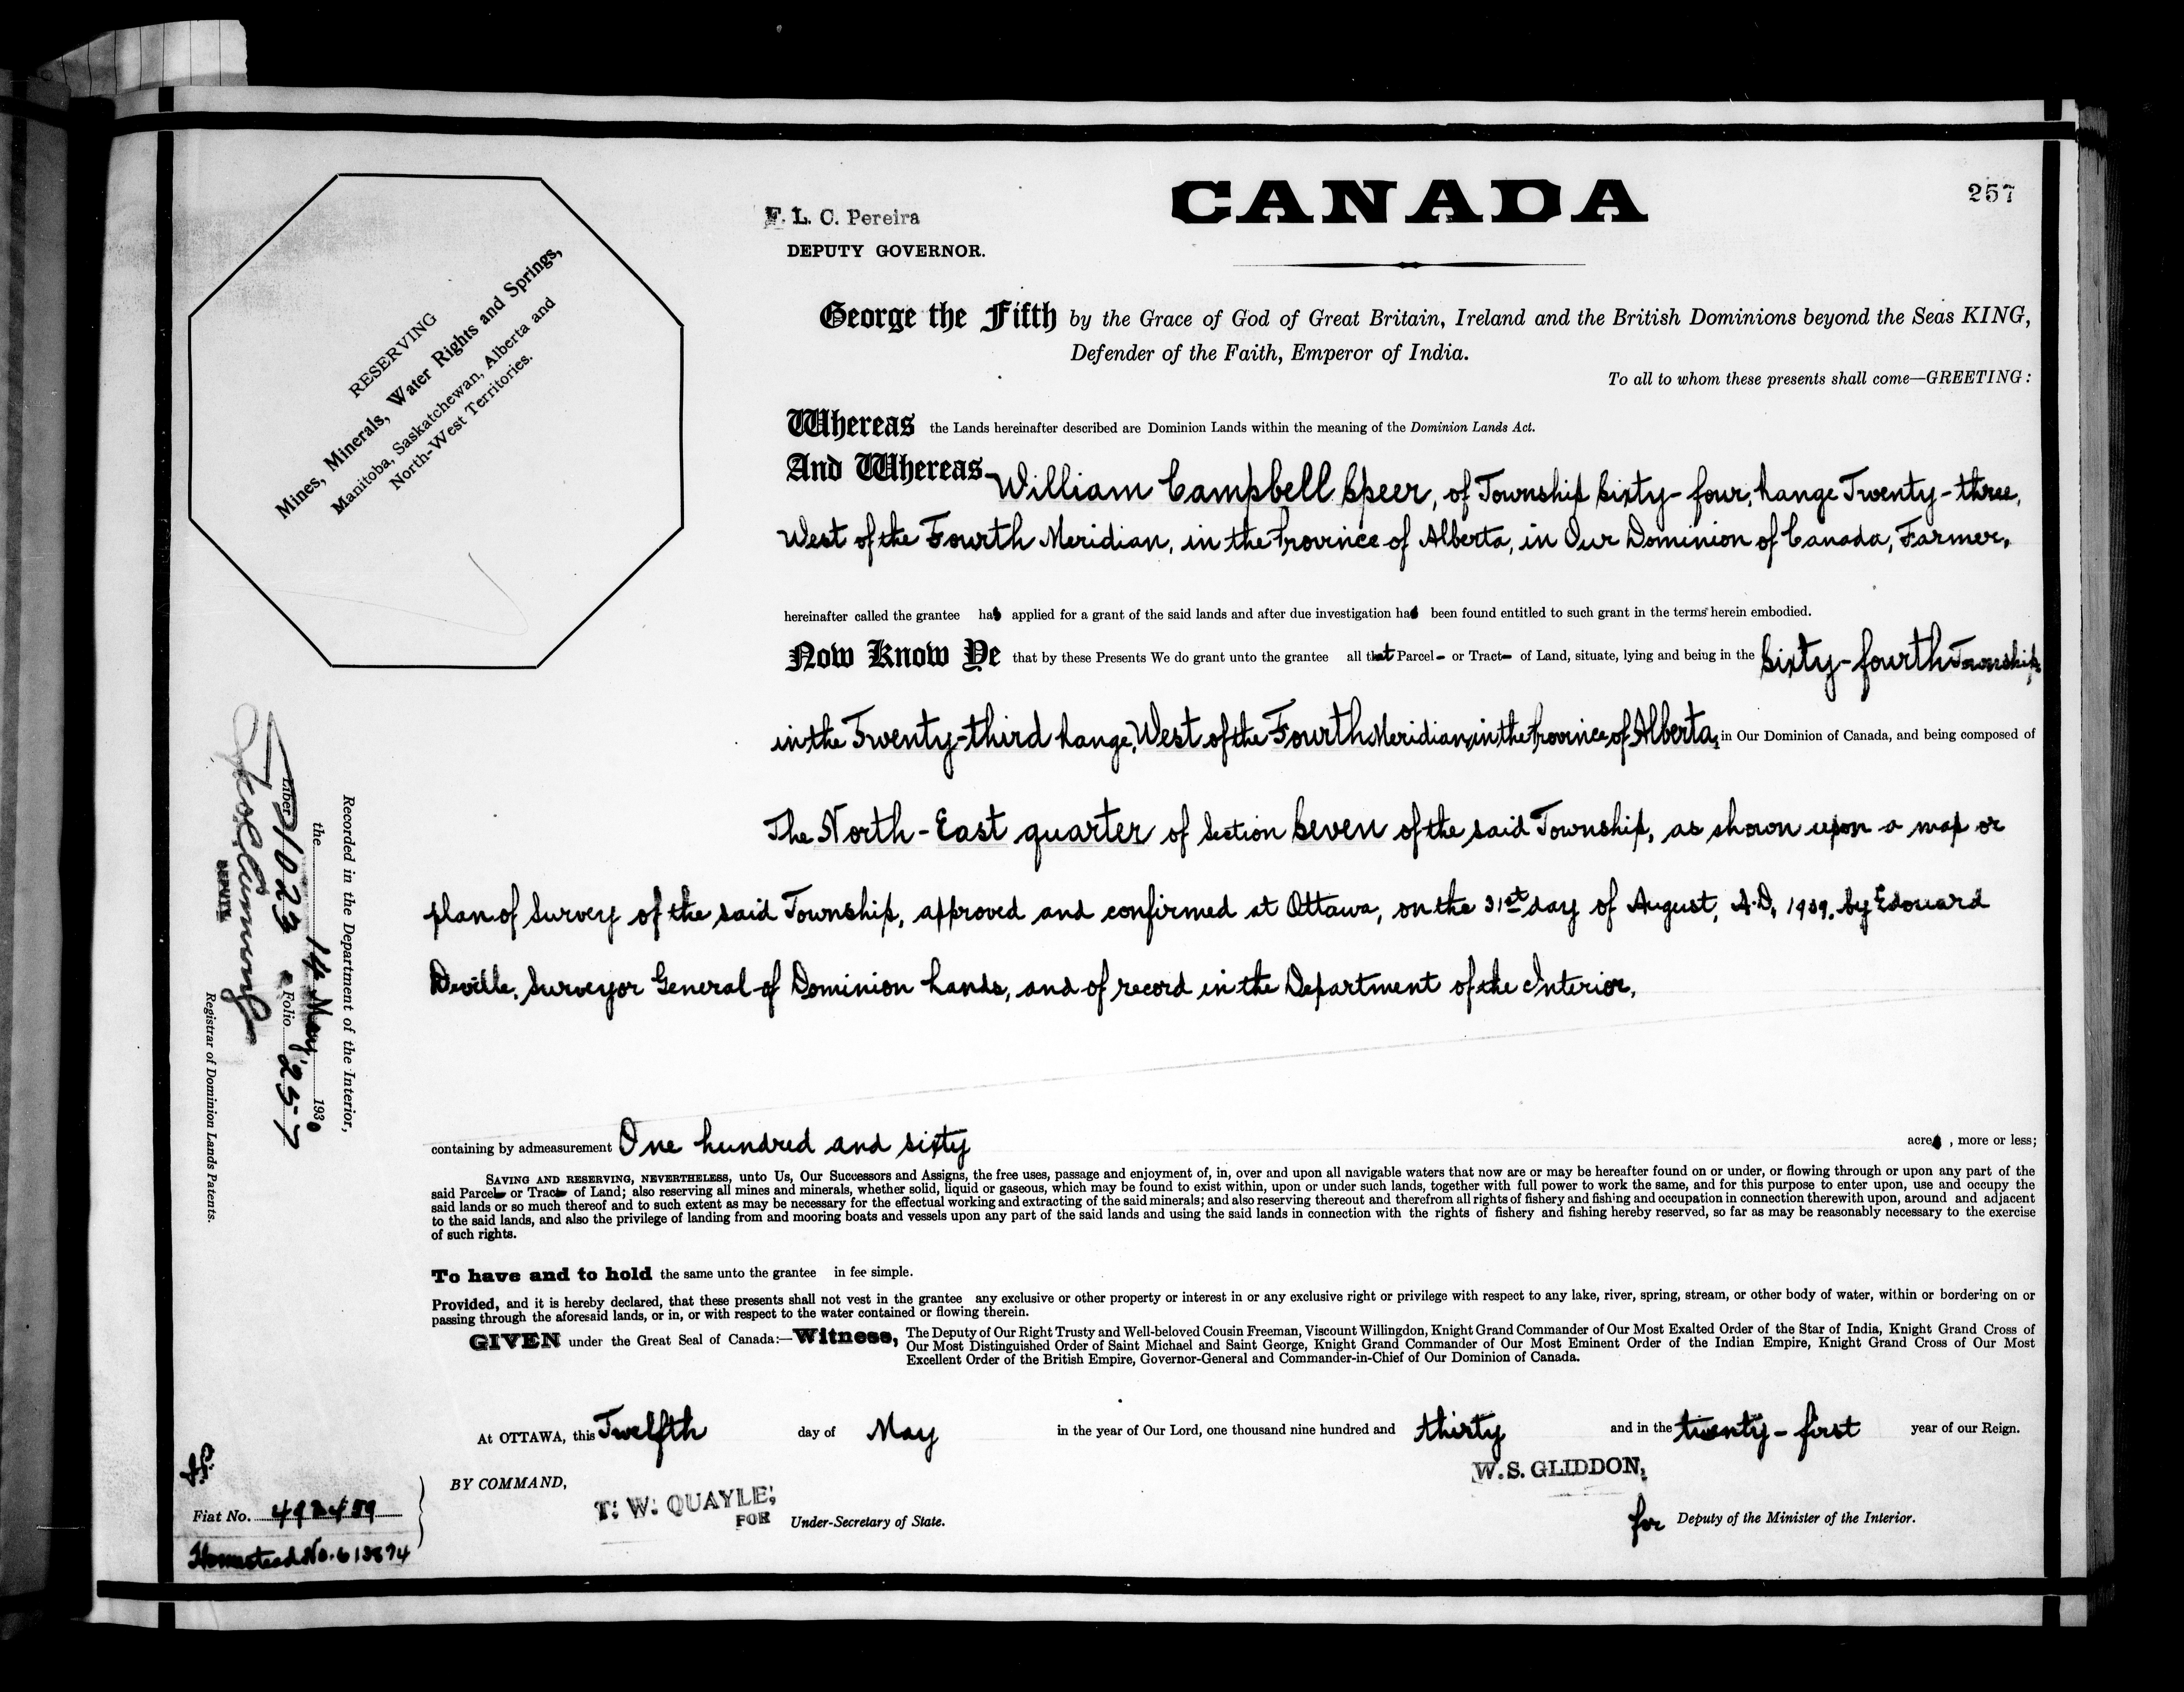 257
CANADA
F. L. C. Pereira
DEPUTY GOVERNOR.
RESERVING
Mines, Minerals, Water Rights and Springs,
Manitoba, Saskatchewan, Alberta and
North-West Territories.
George the Fifth by the Grace of God of Great Britain, Ireland and the British Dominions beyond the Seas KING,
Defender of the Faith, Emperor of India.
To all to whom these presents shall come—GREETING:
Whereas the Lands hereinafter described are Dominion Lands within the meaning of the Dominion Lands Act.
And Whereas William Campbell Speer, of Township Sixty-four, Range Twenty-three,
West of the Fourth Meridian, in the Province of Alberta, in Our Dominion of Canada, Farmer,
hereinafter called the grantee has applied for a grant of the said lands and after due investigation has been found entitled to such grant in the terms herein embodied.
Now Know Ye that by these Presents We do grant unto the grantee all that Parcel - or Tract - of Land, situate, lying and being in the Sixty-fourth Township
in the Twenty-third Range, West of the Fourth Meridian, in the Province of Alberta, in Our Dominion of Canada, and being composed of
The North-East quarter of Section Seven of the said Township, as shown upon a map or
plan of Survey of the said Township, approved and confirmed at Ottawa, on the 31st day of August, A.D, by Edouard
Deville, Surveyor General of Dominion Lands, and of record in the Department of the Interior,
containing by admeasurement One hundred and sixty acres , more or less;
SAVING AND RESERVING, NEVERTHELESS, unto Us, Our Successors and Assigns, the free uses, passage and enjoyment of, in, over and upon all navigable waters that now are or may be hereafter found on or under, or flowing through or upon any part of the
said Parcel or Tract of Land; also reserving all mines and minerals, whether solid, liquid or gaseous, which may be found to exist within, upon or under such lands, together with full power to work the same, and for this purpose to enter upon, use and occupy the
said lands or so much thereof and to such extent as may be necessary for the effectual working and extracting of the said minerals; and also reserving thereout and therefrom all rights of fishery and fishing and occupation in connection therewith upon, around and adjacent
to the said lands, and also the privilege of landing from and mooring boats and vessels upon any part of the said lands and using the said lands in connection with the rights of fishery and fishing hereby reserved, so far as may be reasonably necessary to the exercise
of such rights.
To have and to hold the same unto the grantee in fee simple.
Provided, and it is hereby declared, that these presents shall not vest in the grantee any exclusive or other property or interest in or any exclusive right or privilege with respect to any lake, river, spring, stream, or other body of water, within or bordering on or
passing through the aforesaid lands, or in, or with respect to the water contained or flowing therein.
GIVEN under the Great Seal of Canada:—Witness, The Deputy of Our Right Trusty and Well-beloved Cousin Freeman, Viscount Willingdon, Knight Grand Commander of Our Most Exalted Order of the Star of India, Knight Grand Cross of
Our Most Distinguished Order of Saint Michael and Saint George, Knight Grand Commander of Our Most Eminent Order of the Indian Empire, Knight Grand Cross of Our Most
Excellent Order of the British Empire, Governor-General and Commander-in-Chief of Our Dominion of Canada.
At OTTAWA, this Twelfth day of May in the year of Our Lord, one thousand nine hundred and thirty and in the twenty-first year of our Reign.
BY COMMAND,
T. W. QUAYLE,
FOR Under-Secretary of State.
W. S. GLIDDON,
for Deputy of the Minister of the Interior.
Recorded in the Department of the Interior,
the 14 May 1930
Liber 1023 Folio 257
DEPUTY
Registrar of Dominion Lands Patents.
Fiat No.
Homestead No. 613874